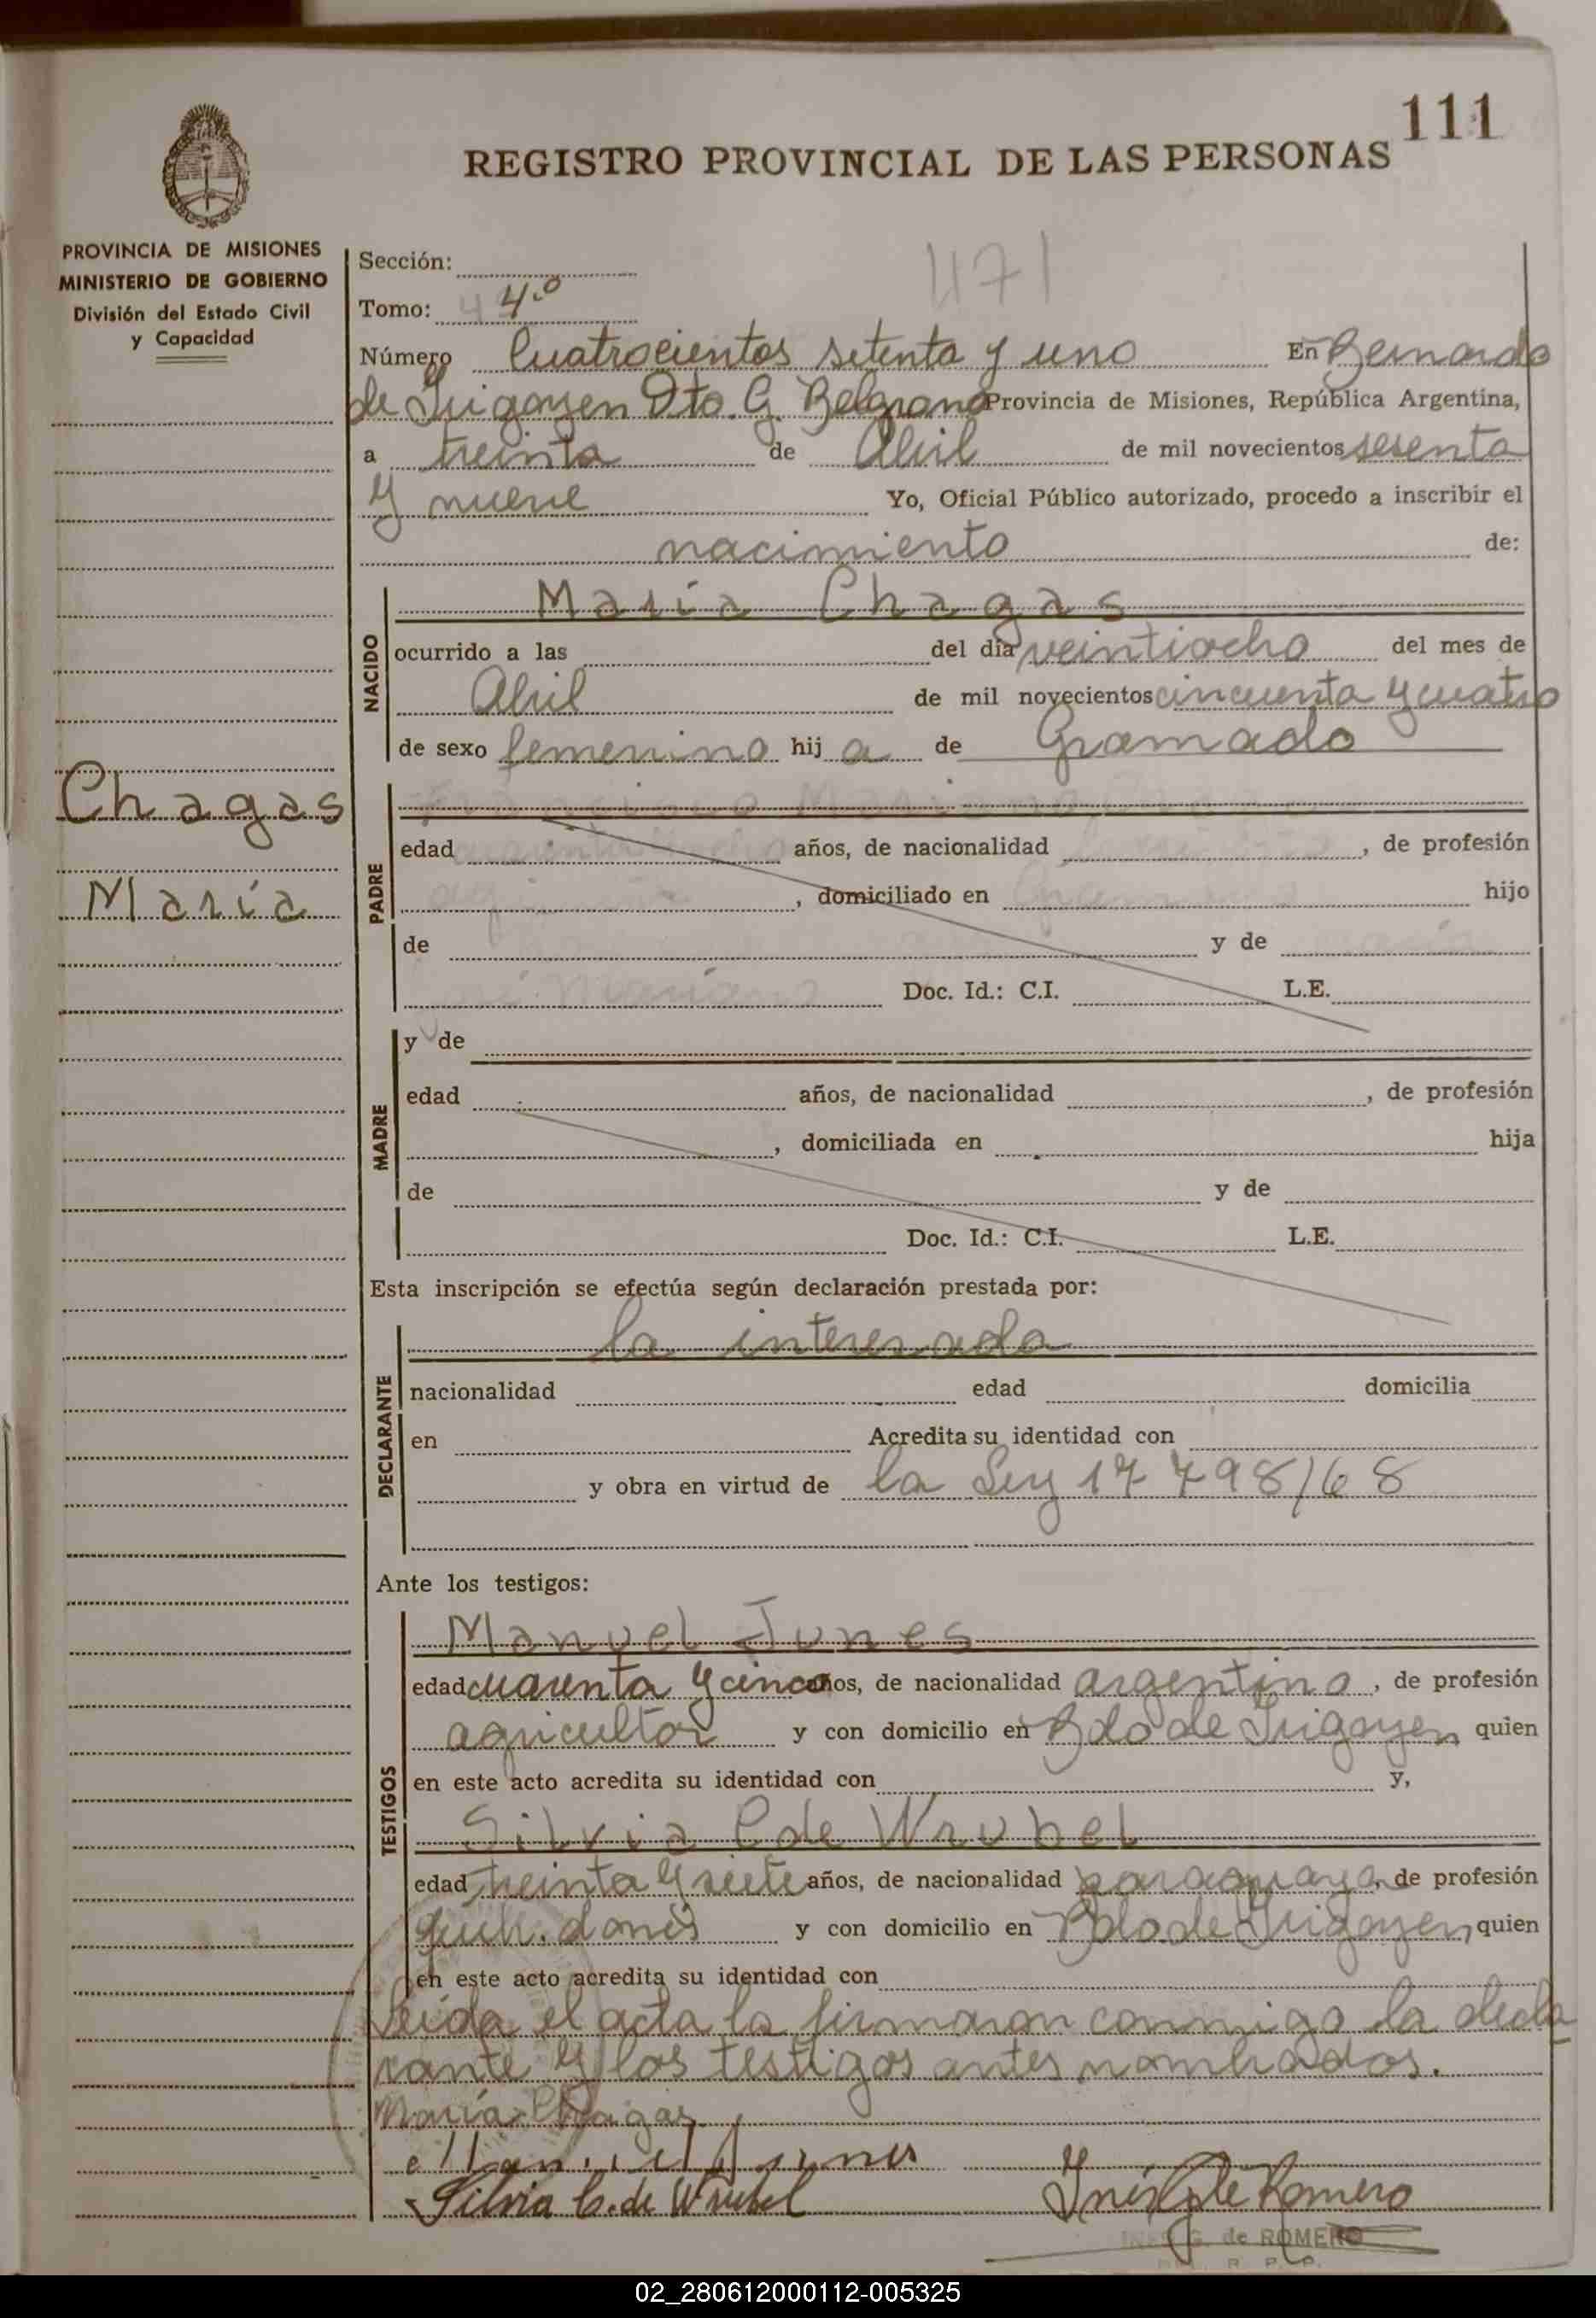 111
REGISTRO PROVINCIAL DE LAS PERSONAS
PROVINCIA DE MISIONES
MINISTERIO DE GOBIERNO
División del Estado Civil
y Capacidad
471
Sección:
Tomo: 4 4.º
Número Cuatrocientos setenta y uno En Bernardo
de Irigoyen Dto. G. Belgrano Provincia de Misiones, República Argentina,
a treinta de Abril de mil novecientos sesenta
y nueve Yo, Oficial Público autorizado, procedo a inscribir el
nacimiento de:
NACIDO
María Chagas
ocurrido a las del día veintiocho del mes de
Abril de mil novecientos cincuenta y cuatro
de sexo femenino hij a de Gramado
Chagas
María
PADRE
edad años, de nacionalidad , de profesión
, domiciliado en hijo
de y de
Doc. Id.: C.I. L.E.
MADRE
y de
edad años, de nacionalidad , de profesión
, domiciliada en hija
de y de
Doc. Id.: C.I. L.E.
Esta inscripción se efectúa según declaración prestada por:
DECLARANTE
la interesada
nacionalidad edad domicilia
en Acredita su identidad con
y obra en virtud de la Ley 17 798/68
Ante los testigos:
TESTIGOS
Manuel Junes
edad cuarenta y cinco años, de nacionalidad argentino, de profesión
agricultor y con domicilio en Bdo de Irigoyen quien
en este acto acredita su identidad con y,
Silvia C de Wrubel
edad treinta y siete años, de nacionalidad paraguaya, de profesión
y con domicilio en Bdo de Irigoyen, quien
en este acto acredita su identidad con
Leida el acta la firmaron conmigo la decla
rante y los testigos antes nombrados.
María Chagas
Manuel Junes
Silvia C. de Wrubel
Inés G de Romero
INES G. de ROMERO
R. P. P.
02_280612000112-005325